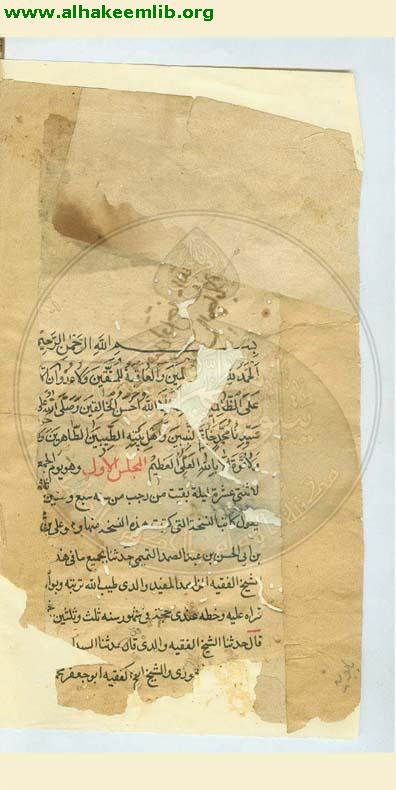 www.alhakeemlib.org
بسم الله الرحمن الرحيم
الحمد لله المين والعاقبة للمتقين ولا عدوان الا
على الظا الله احسن الخالقين وصلى الله على
سيدنا محمد خا لنبيين واهل بيته الطيبين الطاهرين و
ولا قوة الا بالله العلي العظيم المجلس الاول وهو يوم الجمعة
لاثنتي عشرة ليلة بقيت من رجب من سنه سبع وستين
يقول كاتب النسخة التي كتبت هذه النسخة منها وهو علي بن
بن ابي الحسن بن عبد الصمد التميمي حدثنا بجميع ما في هذ
الشيخ الفقيه والدي طيب الله تربته
قراه عليه وخطه عندي حجة في شهور سنه ثلث وثلثين
قال حدثنا الشيخ الفقيه والدي قال حدثنا السيد ا
والشيخ الفقيه ابو جعفر